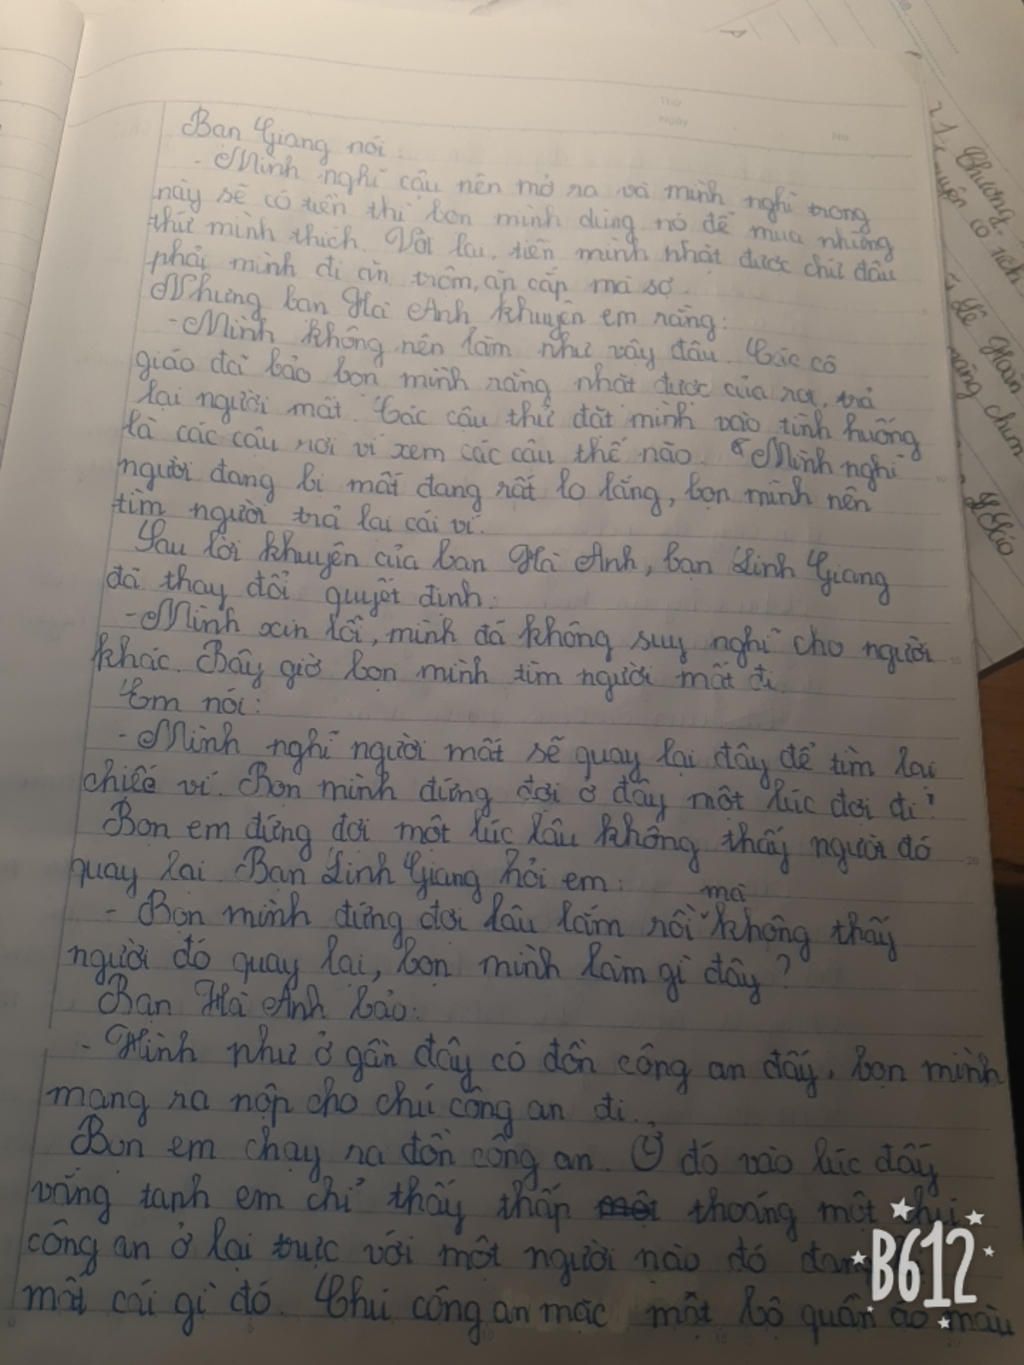 Thứ
Ngày
No
Bạn Giang nói:
- Mình nghĩ cậu nên mở ra và mình nghĩ trong
này sẽ có tiền thì bọn mình dùng nó để mua những
thứ mình thích. Với lại, tiền mình nhặt được chứ đâu
phải mình đi ăn trộm, ăn cắp mà sợ.
Nhưng bạn Hà Anh khuyên em rằng:
- Mình không nên làm như vậy đâu. Các cô
giáo đã bảo bọn mình rằng nhặt được của rơi, trả
lại người mất. Các cậu thử đặt mình vào tình huống
là các cậu rơi ví xem các cậu thế nào. Mình nghĩ
người đang bị mất đang rất lo lắng, bọn mình nên
tìm người trả lại cái ví.
Sau lời khuyên của bạn Hà Anh, bạn Linh Giang
đã thay đổi quyết định:
- Mình xin lỗi, mình đã không suy nghĩ cho người
khác. Bây giờ bọn mình tìm người mất đi.
Em nói:
- Mình nghĩ người mất sẽ quay lại đây để tìm lại
chiếc ví. Bọn mình đứng đợi ở đây một lúc đợi đi!
Bọn em đứng đợi một lúc lâu không thấy người đó
quay lại. Bạn Linh Giang hỏi em:
- Bọn mình đứng đợi lâu lắm rồi mà không thấy
người đó quay lại, bọn mình làm gì đây?
Bạn Hà Anh bảo:
- Hình như ở gần đây có đồn công an đấy, bọn mình
mang ra nộp cho chú công an đi.
Bọn em chạy ra đồn công an. Ở đó vào lúc đấy
vắng tanh em chỉ thấy thấp thoáng một chú
công an ở lại trực với một người nào đó
mất cái gì đó. Chú công an mặc một bộ quần áo màu
B612